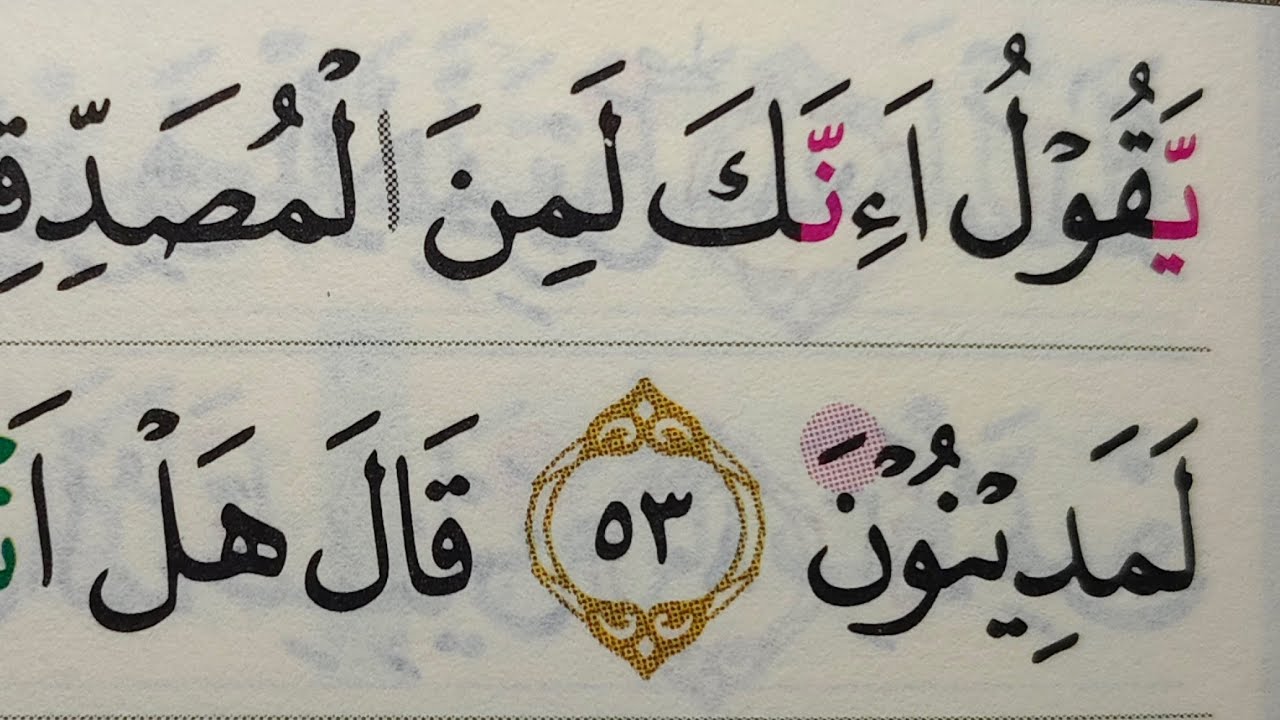 يَّقُوْلُ اَءِنَّكَ لَمِنَ الْمُصَدِّقِ
لَمَدِيْنُوْنَ ٥٣ قَالَ هَلْ اَ